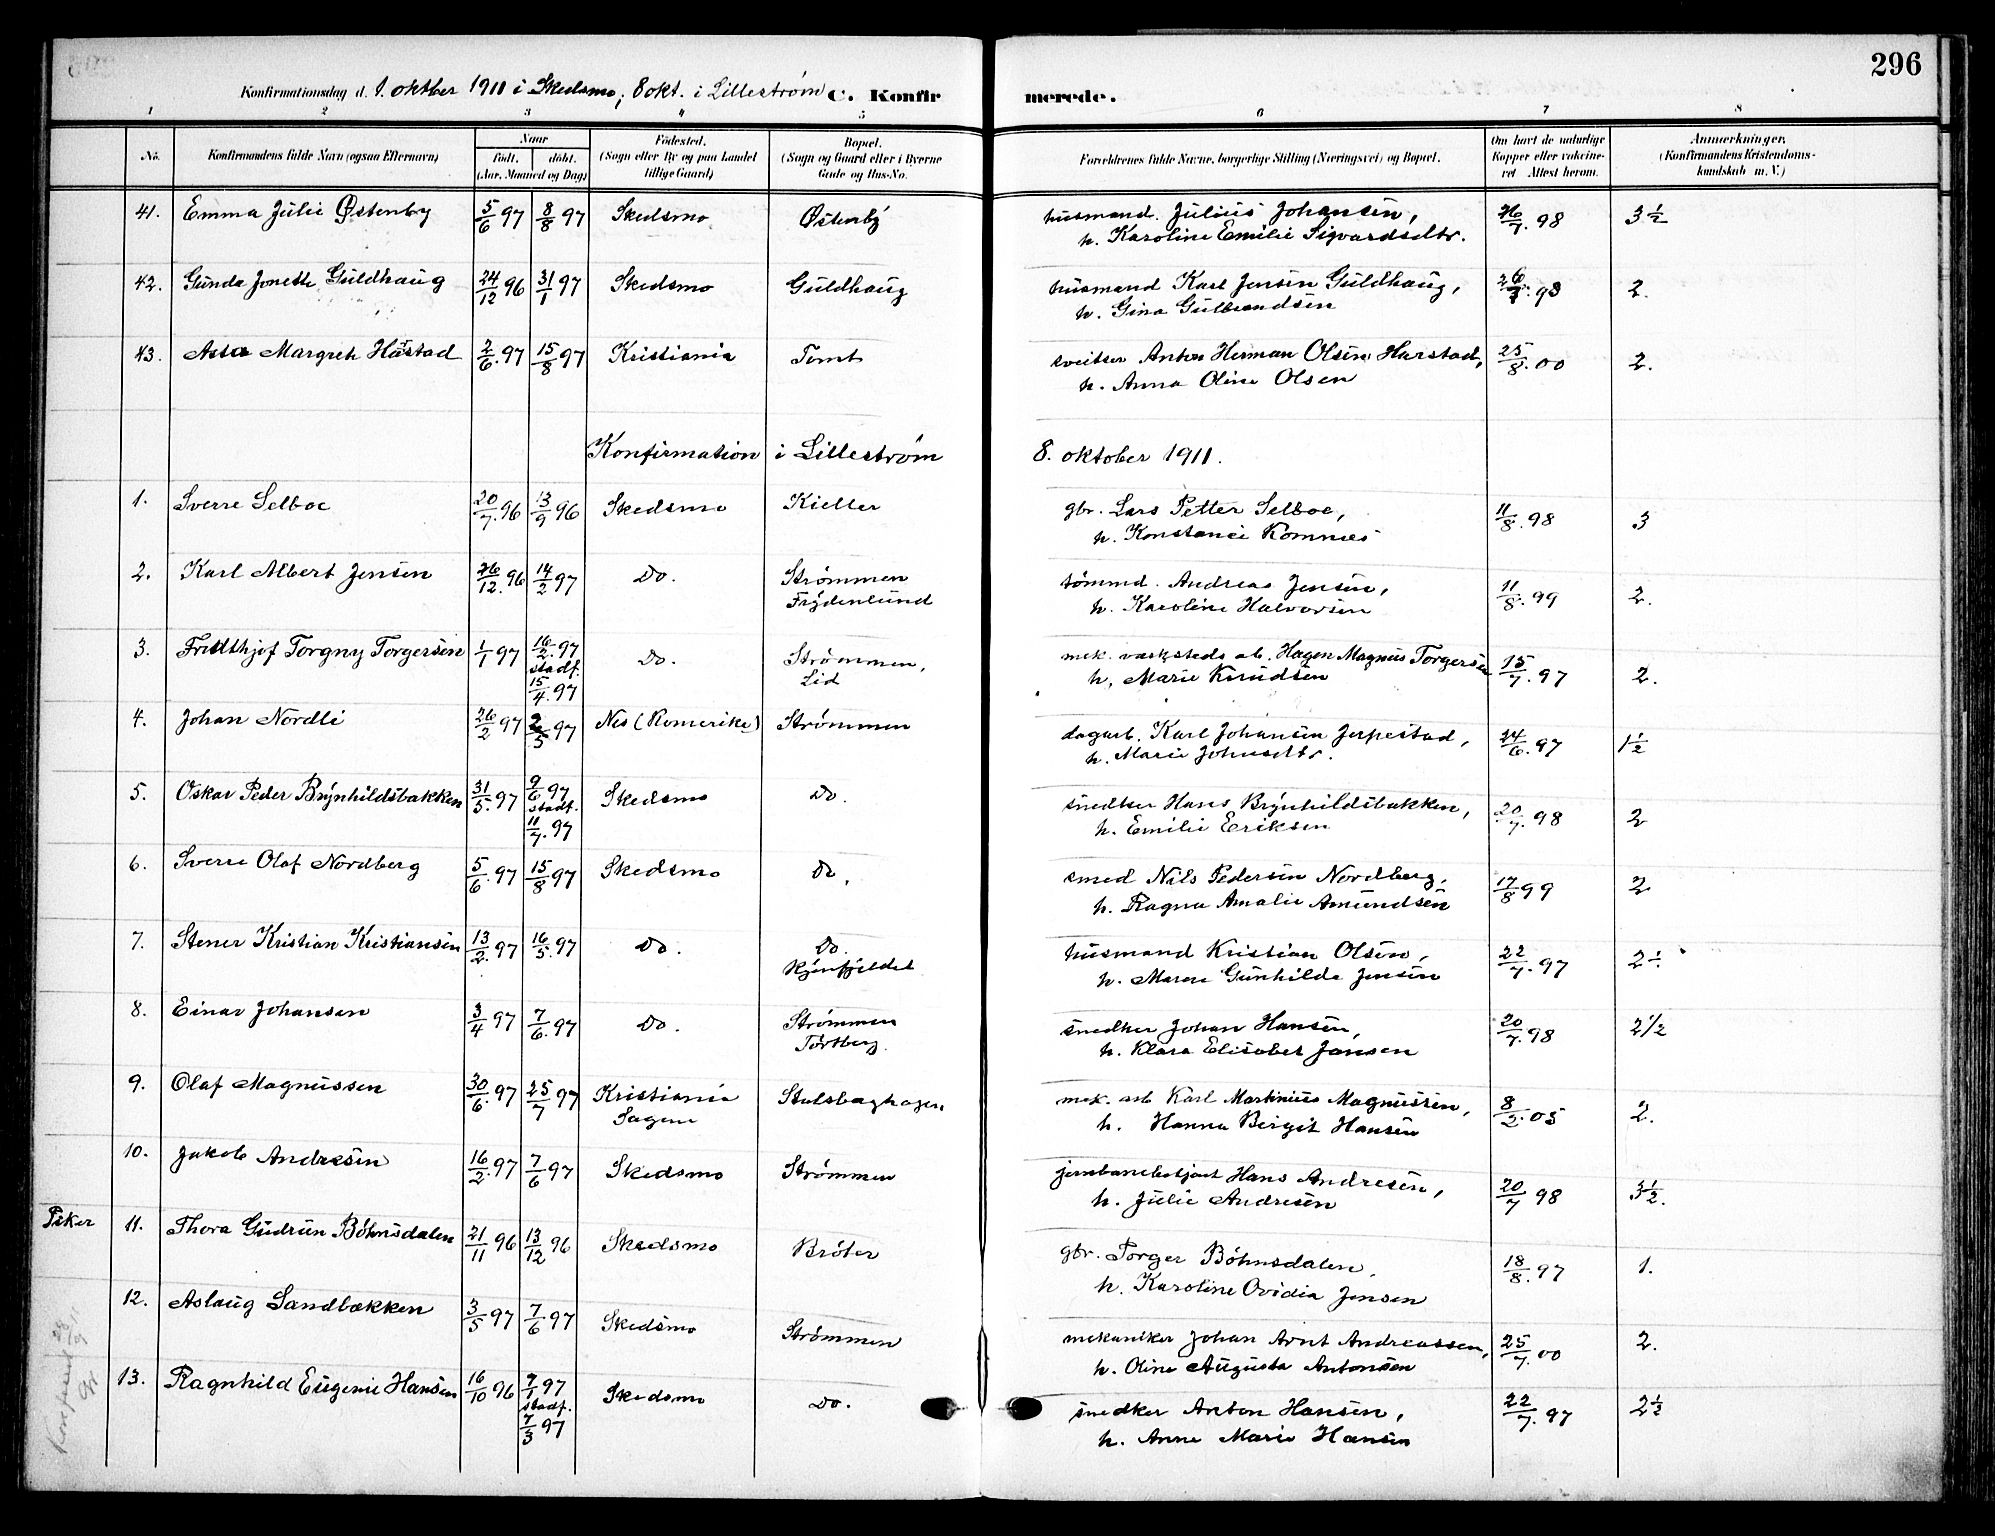 296
Konfirmationsdag d. 1. oktber 1911 i Skedsmo, 8 okt. i Lillestrøm C. Konfirmerede.
1 2 3 4 5 6 7 8
No. Konfirmandens fulde Navn (ogsaa Efternavn) Naar født. døbt. (Aar, Maaned og Dag) Fødested. (Sogn eller By og paa Landet tillige Gaard) Bopæl. (Sogn og Gaard eller i Byerne Gade og Hus-No. Forældrenes fulde Navne, borgerlige Stilling (Næringsvei) og Bopæl. Om havt de naturlige Kopper eller vakcineret Attest herom. Anmærkninger, (Konfirmandens Kristendomskundskab m. V.)
41. Emma Julie Østenby 5/6 97 8/8 97 Skedsmo Østerby husmand. Julius Johansen, 26/7. 98 3 1/2
h. Karoline Emilie Sigvardsdtr.
42. Gunda Jonette Guldhaug 24/12 96 31/1 97 Skedsmo Guldhaug husmand Karl Jensen Guldhaug, 2.
h. Gina Gulbrandsen
43. Asta Margreth Hastad 2/6. 97 15/8 97 Kristiania Tomt sveitser Anton Herman Olsen Harstad, 25/8. 00 2.
h. Anna Oline Olsen
Konfirmation i Lillestrøm 8. oktober 1911.
1. Sverre Selboe 20/7. 96 13/9 96 Skedsmo Kjeller gbr. Lars Petter Selboe, 11/8. 98 3
h. Konstance Romnæs
2. Karl Albert Jensen 26/12. 96 14/2 97 Do. Strømmen tømmd. Andreas Jensen, 11/8. 99 2.
Frydenlund h. Karoline Halvorsen
3. Fridthjof Torgny Torgersen 1/1 97 16/2. 97 Do. Strømmen, mek. værksteds arb. Hagen Magnus Torgersen 15/7. 97 2.
stadf. 15/4. 97 Lid h. Marie Knudsen
4. Johan Nordli 26/2 97 2/5 97 Nes (Romerike) Strømmen dagarb. Karl Johansen Jerpestad, 24/6. 97 1 1/2
h. Marie Johnsdtr.
5. Oskar Peder Brynhildsbakken 31/5. 97 9/6 97 Skedsmo Do. snedker Hans Brynhildsbakken, 20/7. 98 2
stadf. 11/7. 97 h. Emilie Eriksen
6. Sverre Olaf Nordberg 5/6. 97 15/8 97 Skedsmo Do. smed Nils Pedersen Nordberg, 17/8 99 2
h. Ragna Amalie Amundsen
7. Stener Kristian Kristiansen 13/2. 97 16/5. 97 Do. Do. husmand Kristian Olsen, 22/7. 97
Kjenfjeldet h. Maren Gunhilde Jensen
8. Einar Johansen 3/4 97 7/6. 97 Do. Strømmen snedker Johan Hansen, 20/7. 98 2 1/2
Tortberg. h. Klara Elisabet Jansen
9. Olaf Magnussen 30/6. 97 25/7 97 Kristiania Stalsberghagen. mek. arb Karl Martinius Magnussen, 8/2. 05 2.
Sagene h. Hanna Birgit Hansen
10. Jakob Andresen 16/2. 97 7/6 97 Skedsmo Strømmen jernbanebetjent Hans Andresen, 20/7 98 3 1/2.
h. Julie Andresen
Piker 11. Thora Gudrun Böhnsdalen 21/11 96 13/12 96 Skedsmo Brøter gbr. Torger Böhnsdalen, 18/8. 97 1.
h. Karoline Ovidia Jensen
12. Aslaug Sandbækken 3/5 97 7/6 97 Skedsmo Strømmen mekaniker Johan Arnt Andreassen, 25/7. 00 2.
h. Oline Augusta Antonsen
13. Ragnhild Eugenie Hansen 16/10 96 7/1 97 Skedsmo Do. snedker Anton Hansen, 22/7. 97 2 1/2
stadf. 7/3 97 h. Anne Marie Hansen